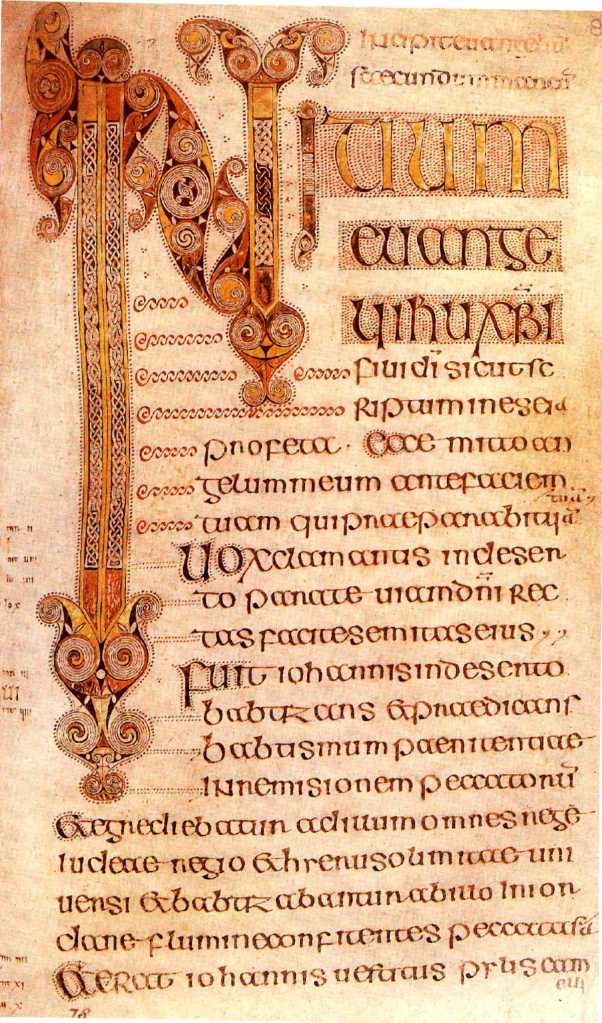 8
INITIUM
euange
lii ihu xpi
fili dī sicut sc
riptum in eseia
profeta · Ecce mitto an
gelum meum ante faciem
tuam qui praeparabit
Uox clamantis in deser
to parate uiam dn̄i rec
tas facite semitas eius
Fuit iohannis in deserto
babtizans & praedicans
babtismum paenitentiae
in remisionem peccatorū
& egrediebatur ad illum omnes
iudeae regio & hierusolimitae uni
uersi & babtizabantur ab illo in ior
dane flumine confitentes peccata sā
& erat iohannis uestitus pylis cam
eli
78